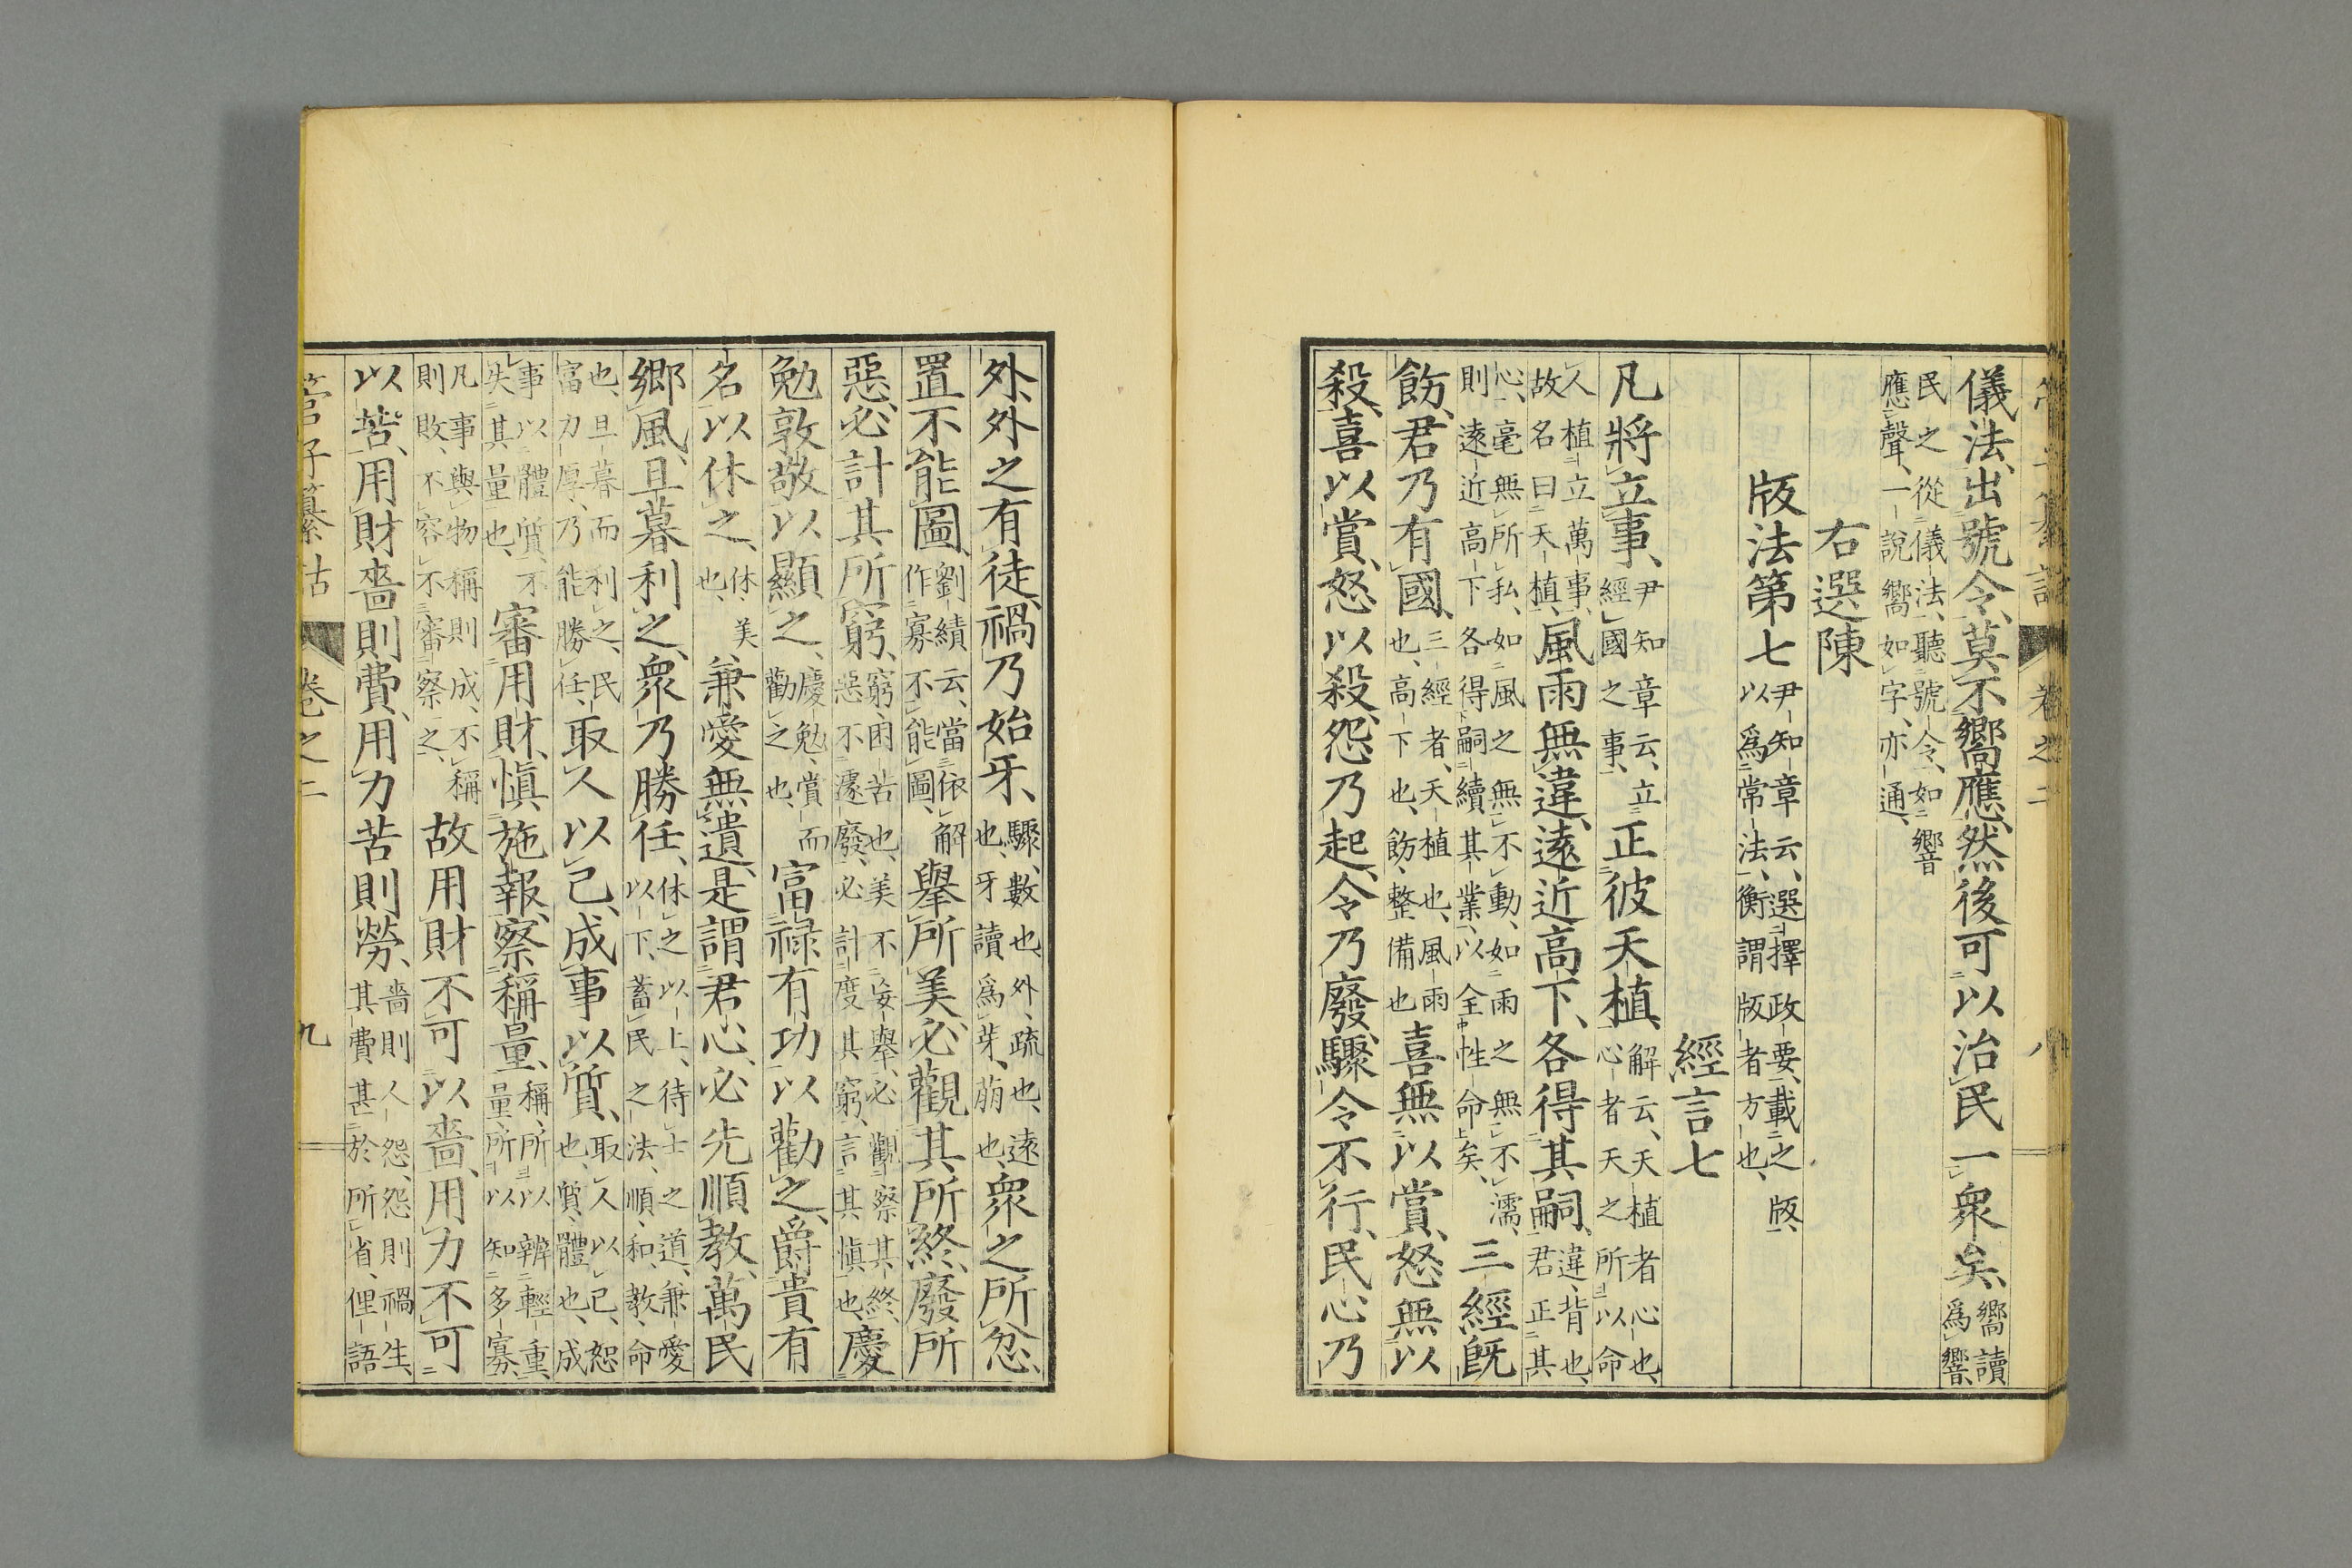 管子纂詁 卷之二 八
儀法、出號令、莫不嚮應、然後可以治民一衆矣、嚮讀爲響、
民之從儀法、聽號令、如響應聲、一說嚮如字、亦通、
右選陳
版法第七 尹知章云、選擇政要、載之版、以爲常法、衡謂版者方也、
經言七
凡將立事、尹知章云、立經國之事、正彼天植、解云、天植者心也、心者天之所以命
人植立萬事、故名曰天植、風雨無違、遠近高下、各得其嗣、違、背也、君正其
心、毫無所私、如風之無不動、如雨之無不濡、則遠近高下各得嗣續其業、以全性命矣、三經既
飭、君乃有國、三經者、天植也、風雨也、高下也、飭、整備也喜無以賞、怒無以
殺、喜以賞、怒以殺、怨乃起、令乃廢、驟令不行、民心乃
外、外之有徒、禍乃始牙、驟、數也、外、疏也、遠也、牙讀爲芽、萠也、衆之所忿、
置不能圖、劉績云、當依解作寡不能圖、擧所美、必觀其所終、廢所
惡、必計其所窮、窮、困苦也、美不妄擧、必觀察其終、惡不遽廢、必計度其窮、言其愼也、慶
勉敦敬以顯之、慶勉、賞而勸之也、富祿有功以勸之、爵貴有
名以休之、休、美也、兼愛無遺、是謂君心、必先順教、萬民
鄉風、旦暮利之、衆乃勝任、休之以上、待士之道、兼愛以下、蓄民之法、順、和、教、命
也、旦暮而利之、民富力厚、乃能勝任、取人以己、成事以質、取人以己、恕也、質、體也、成
事以體質、不失其量也、審用財、愼施報、察稱量、稱、所以辨輕重、量、所以知多寡、
凡事與物稱則成、不稱則敗、不容不審察之、故用財不可以嗇、用力不可
以苦、用財嗇則費、用力苦則勞、嗇則人怨、怨則禍生、其費甚於所省、俚語
管子纂詁 卷之二 九